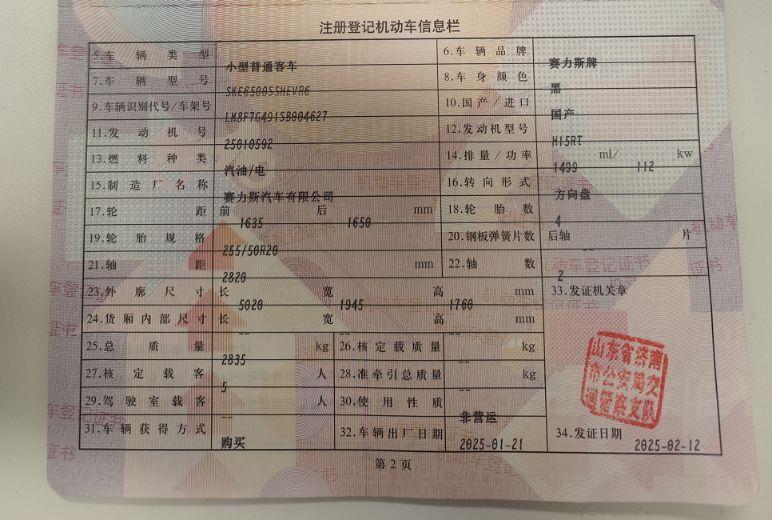 注册登记机动车信息栏
5.车辆类型 小型普通客车 6.车辆品牌 赛力斯牌
7.车辆型号 SKE6500SSHEVR6 8.车身颜色 黑
9.车辆识别代号/车架号 LM8F7G491SB004627 10.国产/进口 国产
11.发动机号 25010592 12.发动机型号 H15RT
13.燃料种类 汽油/电 14.排量/功率 1499 ml/ 112 kw
15.制造厂名称 赛力斯汽车有限公司 16.转向形式 方向盘
17.轮距 前 1635 后 1650 mm 18.轮胎数 4
19.轮胎规格 255/50R20 20.钢板弹簧片数 后轴 -- 片
21.轴距 2820 mm 22.轴数 2
23.外廓尺寸 长 5020 宽 1945 高 1760 mm 33.发证机关章
24.货厢内部尺寸 长 -- 宽 -- 高 -- mm
25.总质量 2835 kg 26.核定载质量 -- kg
27.核定载客 5 人 28.准牵引总质量 -- kg
29.驾驶室载客 -- 人 30.使用性质 非营运
31.车辆获得方式 购买 32.车辆出厂日期 2025-01-21 34.发证日期 2025-02-12
山东省济南
市公安局交
通警察支队
第2页